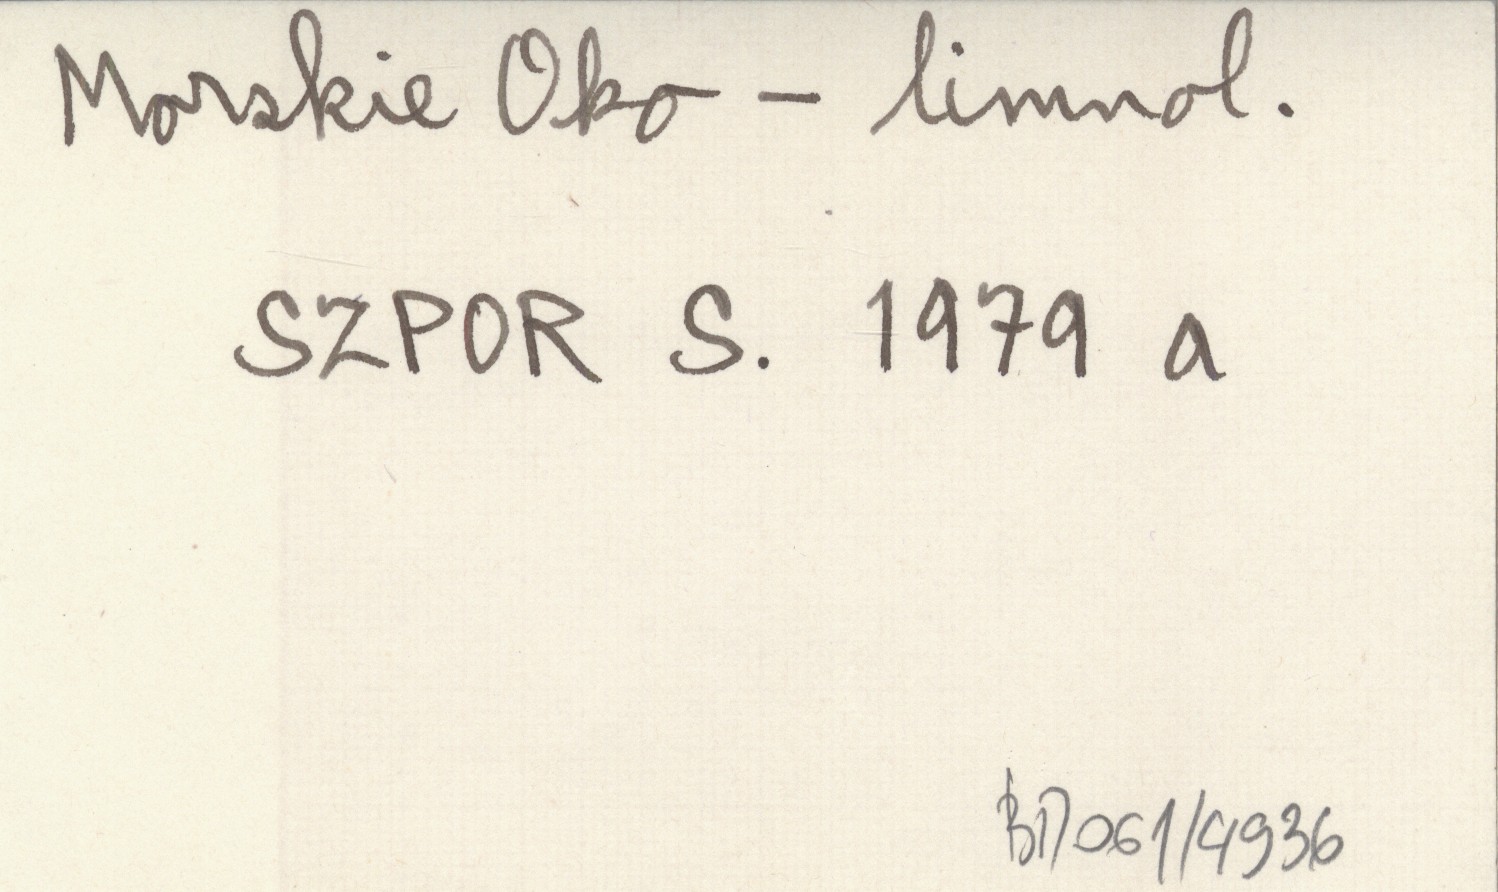 Morskie Oko - limnol.
SZPOR S. 1979 a
BD061/4936